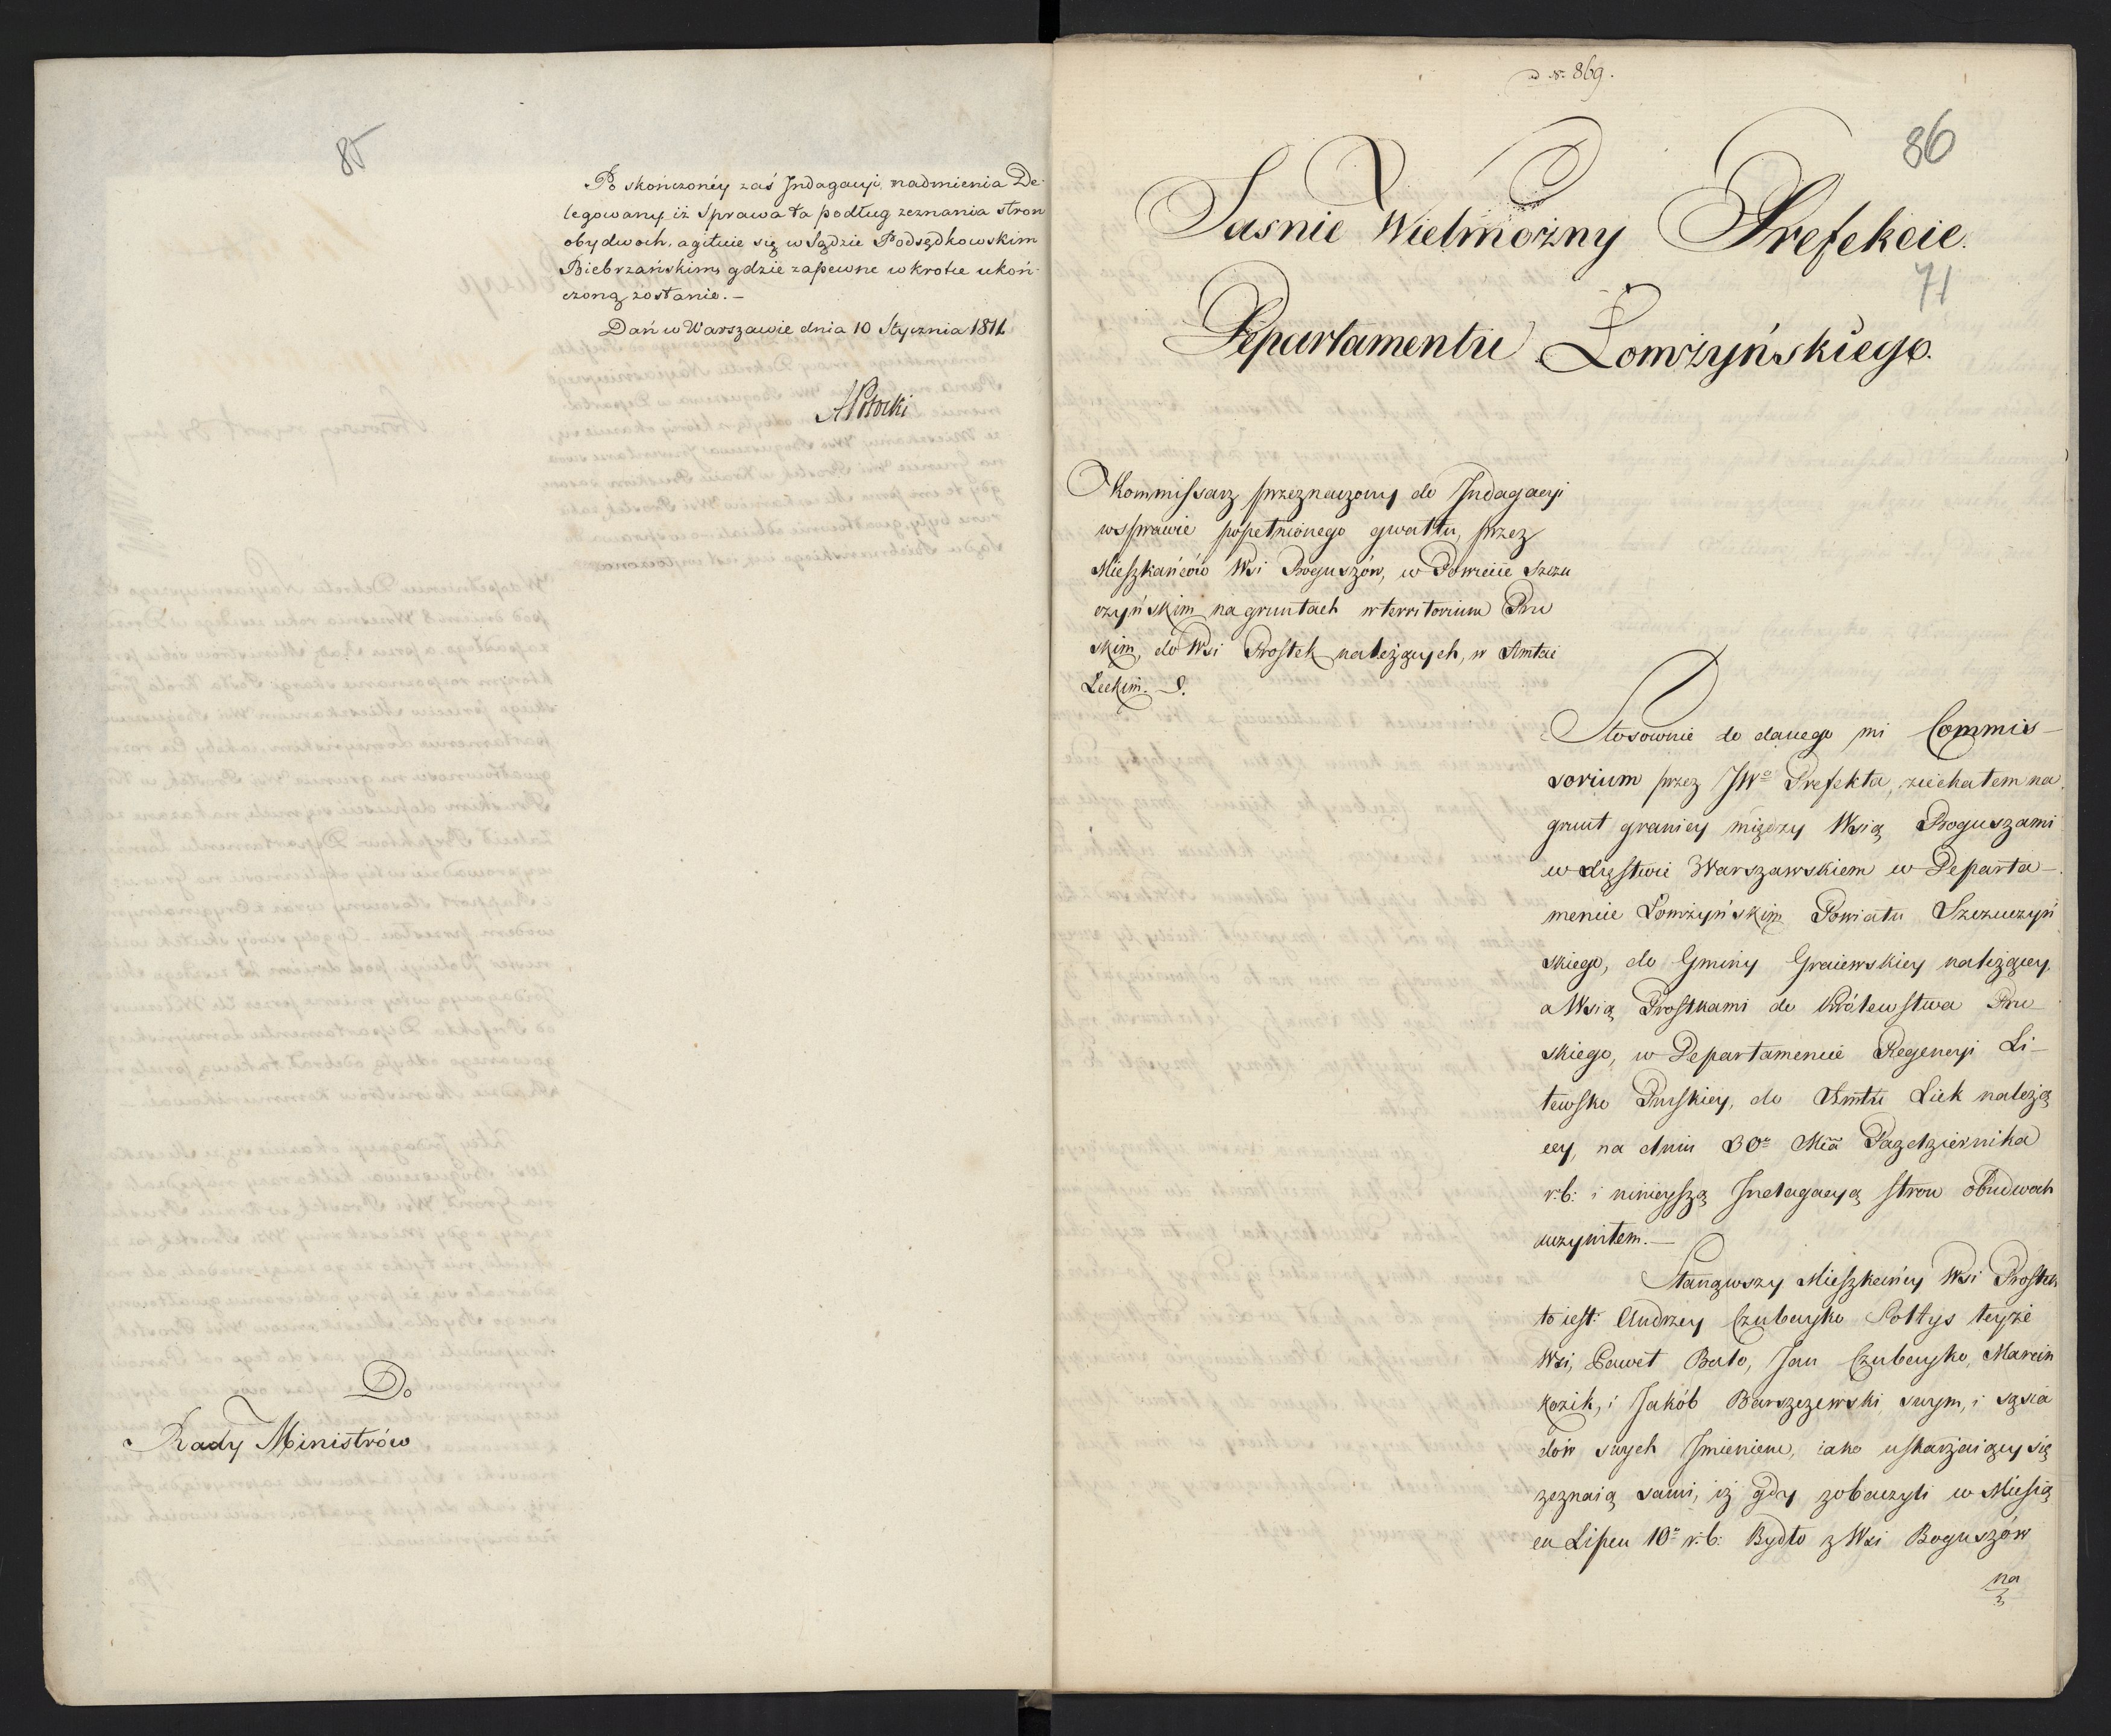 85
Po skończoney zaś Jndagacyi nadmienia De-
legowany iż Sprawa ta podług zeznania stron
obydwoch, agituie się w Sądzie Podsędkowskim
Biebrzańskim, gdzie zapewne w krotce ukoń-
czoną zostanie. —
Dań w Warszawie dnia 10 Stycznia 1811
APotocki
Do
Rady Ministrów
ad N. 869.
86
Jasnie Wielmożny Prefekcie.
71
Departamentu Łomżyńskiego.
Kommissarz przeznaczony do Jndagacyi
w sprawie popełnionego gwałtu, przez
Mieszkańców Wsi Boguszów, w Powiecie Szczu
czyńskim na gruntach w territorium Pru
skim, do Wsi Prostek należących, w Amtcie
Leckim.
Stosownie do danego mi Commis-
sorium przez JWo Prefekta, ziechałem na
grunt granicy między Wsią Boguszami
w Xięstwie Warszawskiem w Departa-
mencie Łomżyńskim Powiatu Szczuczyń
skiego, do Gminy Graiewskiey należącey,
a Wsią Prostkami do Królewstwa Pru-
skiego, w Departamencie Regencyi Li-
tewsko Pruskiey, do Amtu Liek należą
cey, na dniu 30o Mca Pazdziernika
r: b: i ninieyszą Jndagacyą stron obudwoch
uczyniłem. —
Stanąwszy Mieszkańcy Wsi Prostek
to iest: Andrzey Czubayko Sołtys teyże
Wsi, Paweł Bato, Jan Czubayko, Marcin
Kozik, i Jakób Barszczewski swym, i sąsia
dów swych Jmieniem, iako uskarżaiący się
zeznaią sami, iż gdy zobaczyli w Miesią
cu Lipcu 10o r: b: Bydło z Wsi Boguszów
na